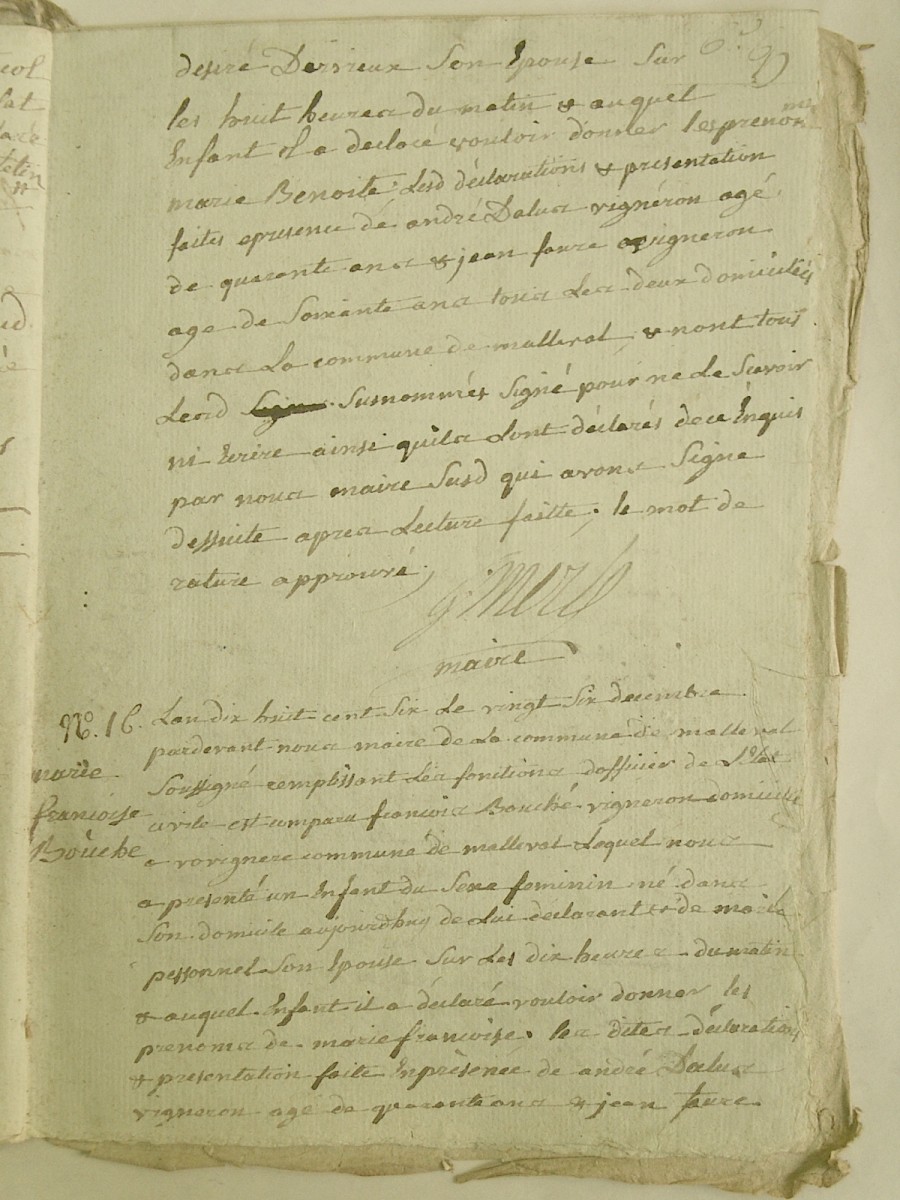 desiré Derrieux Son Epouse Sur
les huit heures du matin & auquel
Enfant il a declaré vouloir donner les prenoms
marie Benoite. Lesd déclarations & presentation
faites epresence dé andré Dalua vignéron agé
de quarante ans & jean faure vigneron
age de Soixante ans tous Les deux domiciliés
dans La commune de malleval, & nont tous
Lesd Susnommés Signé pour ne Le Scavoir
ni Ecrire ainsi quils Lont déclarés dece Enquis
par nous maire Susd qui avons Signe
dessuite apres Lecture faitte; le mot de
rature approuvé;
maire
No. 16. Lan dix huit cent Six Le vingt Six decembre
pardevant nous maire de La commune de malleval
Soussigné remplissant Les fonctions dofficier de Letat
civile est comparu francois Bouché vigneron domicilié
a commune de malleval Lequel nous
a presenté un Enfant du Sexe feminin né dans
Son domicile aujourdhuy de Lui déclarant & de marie
pessonnel Son Epouse Sur Les dix heures du matin
& auquel Enfant il a déclaré vouloir donner les
prenoms de marie francoise. les dites déclarations
& presentation faite Enprèsence de andré Dalua
vigneron agé de quarante ans & jean faure
marie
francoise
Bouche